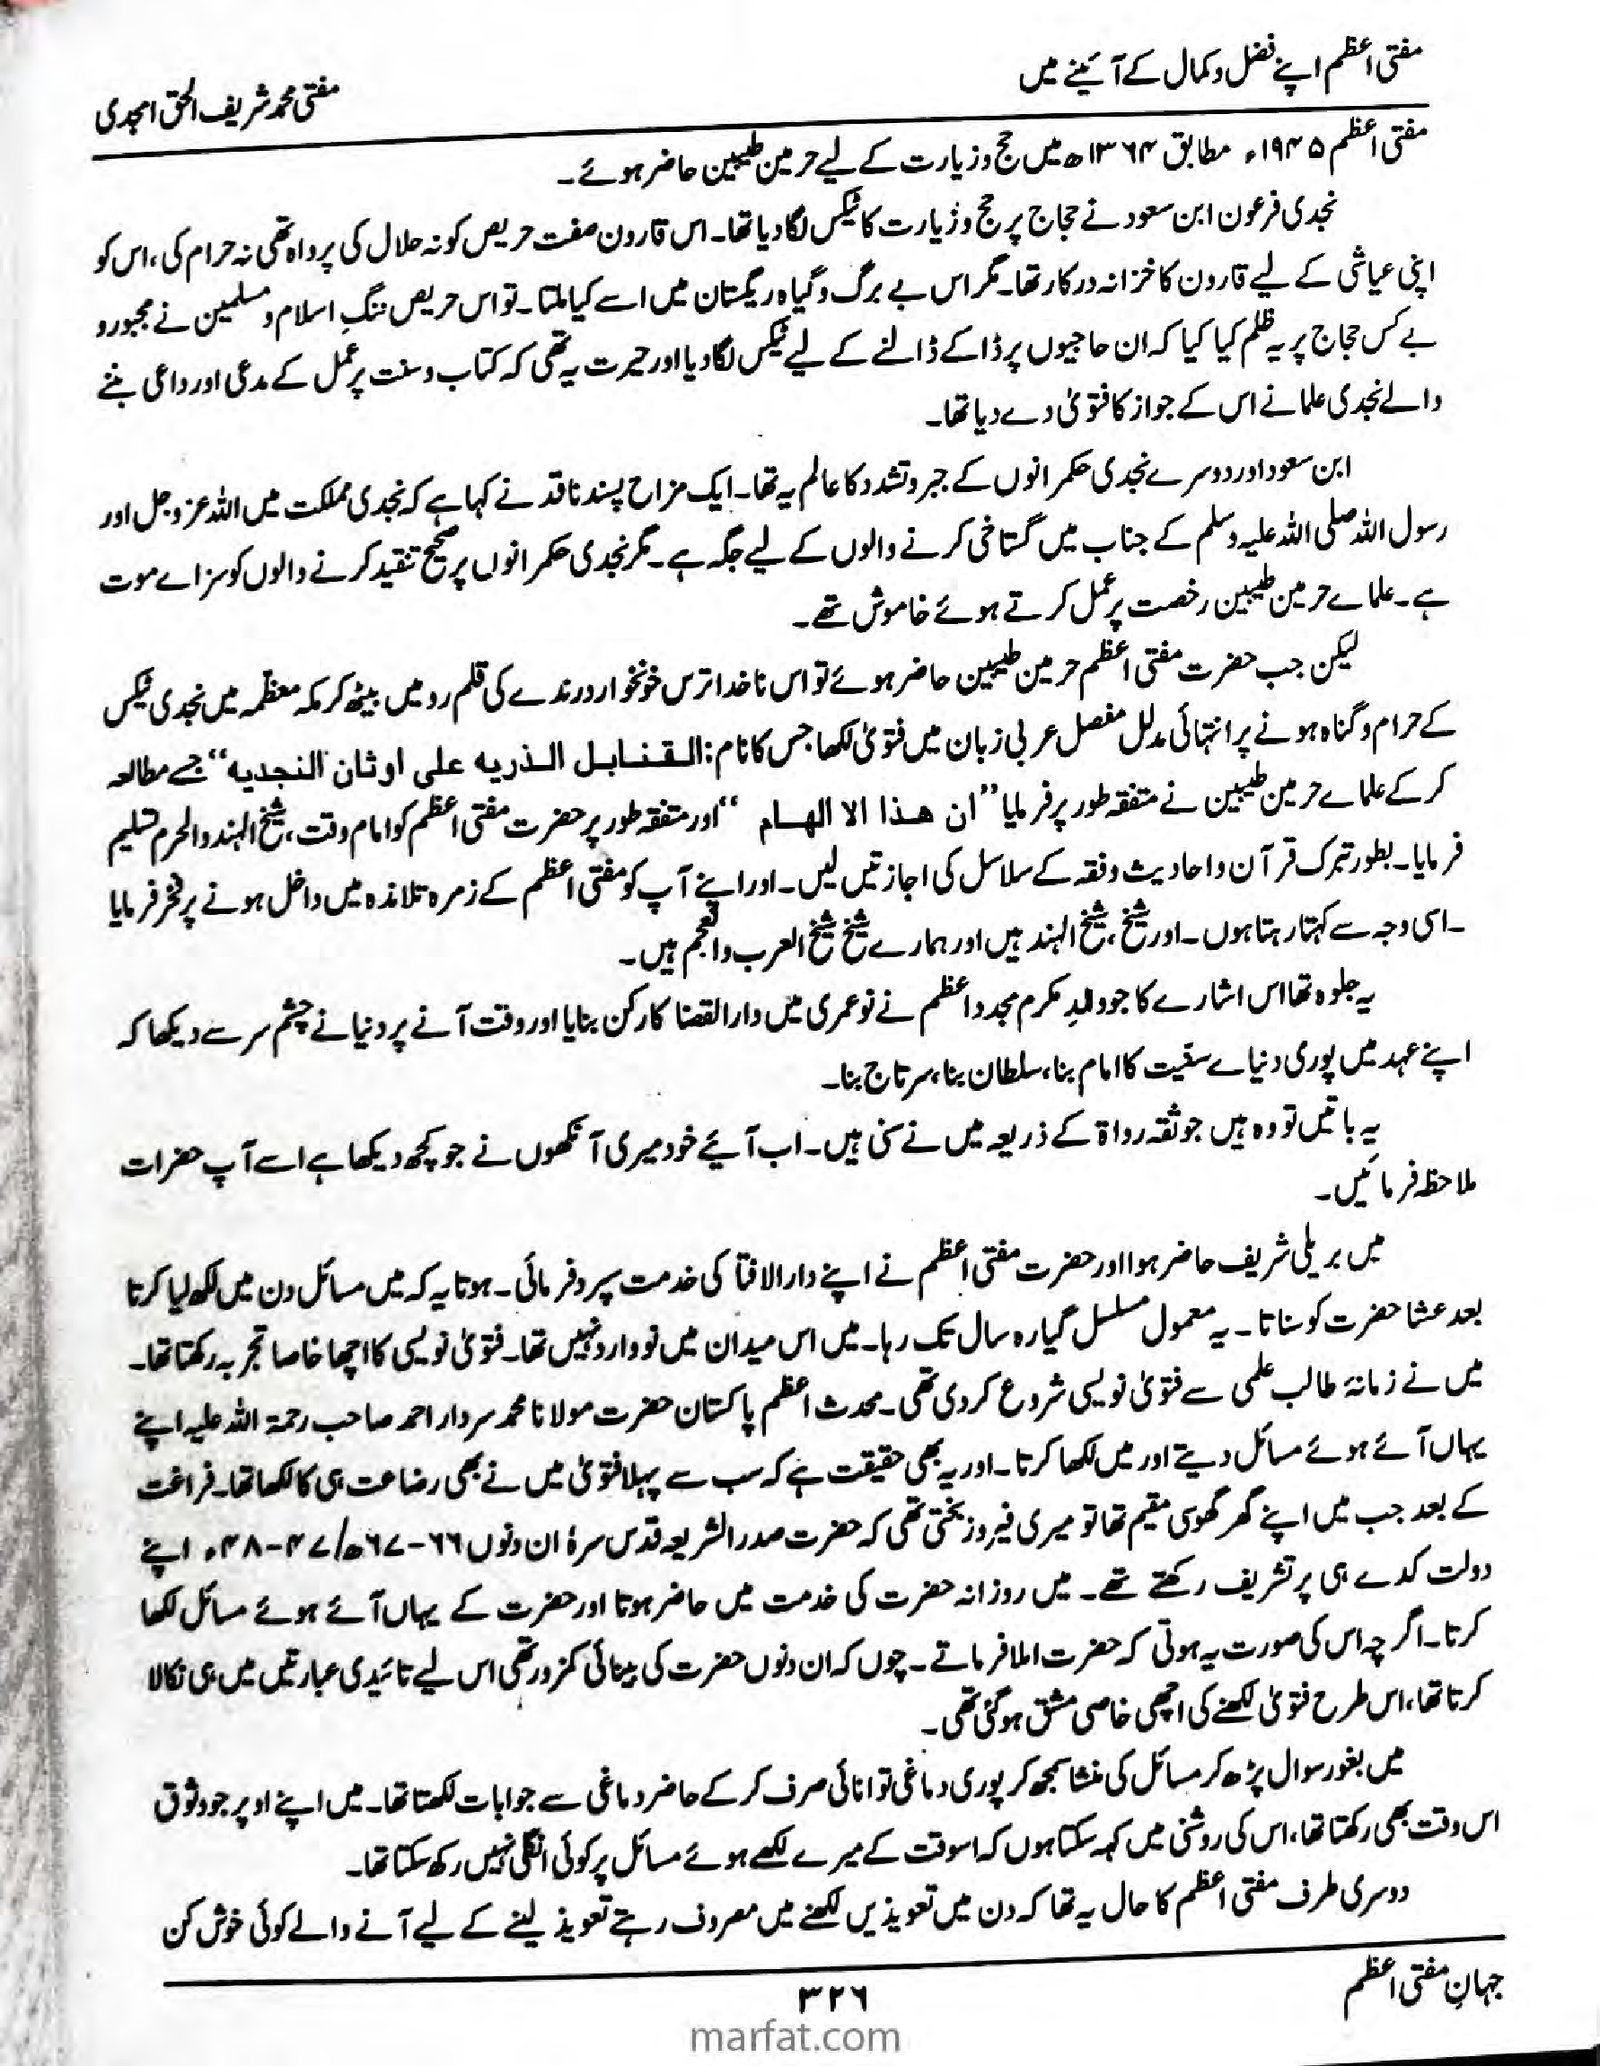 مفتی اعظم اپنے فضل و کمال کے آئینے میں
مفتی محمد شریف الحق امجدی
مفتی اعظم ۱۹۴۵ء مطابق ۱۳۶۴ھ میں حج و زیارت کے لیے حرمین طیبین حاضر ہوئے۔
نجدی فرعون ابن سعود نے حجاج پر حج و زیارت کا ٹیکس لگا دیا تھا۔ اس قارون صفت حریص کو نہ حلال کی پرواہ تھی نہ حرام کی، اس کو
اپنی عیاشی کے لیے قارون کا خزانہ درکار تھا۔ مگر اس بے برگ و گیاہ ریگستان میں اسے کیا ملتا۔ تو اس حریص ننگِ اسلام و مسلمین نے مجبور و
بے کس حجاج پر یہ ظلم کیا کیا کہ ان حاجیوں پر ڈاکے ڈالنے کے لیے ٹیکس لگا دیا اور حیرت یہ تھی کہ کتاب و سنت پر عمل کے مدعی اور داعی بننے
والے نجدی علما نے اس کے جواز کا فتویٰ دے دیا تھا۔
ابن سعود اور دوسرے نجدی حکمرانوں کے جبر و تشدد کا عالم یہ تھا۔ ایک مزاح پسند ناقد نے کہا ہے کہ نجدی مملکت میں اللہ عزوجل اور
رسول اللہ صلی اللہ علیہ وسلم کے جناب میں گستاخی کرنے والوں کے لیے جگہ ہے۔ مگر نجدی حکمرانوں پر صحیح تنقید کرنے والوں کو سزاے موت
ہے۔ علماے حرمین طیبین رخصت پر عمل کرتے ہوئے خاموش تھے۔
لیکن جب حضرت مفتی اعظم حرمین طیبین حاضر ہوئے تو اس نا خدا ترس خونخوار درندے کی قلم رو میں بیٹھ کر مکہ معظّمہ میں نجدی ٹیکس
کے حرام و گناہ ہونے پر انتہائی مدلل مفصل عربی زبان میں فتویٰ لکھا جس کا نام: القنابل الذریہ علی اوثان النجدیہ“ جسے مطالعہ
کر کے علماے حرمین طیبین نے متفقہ طور پر فرمایا ”ان هذا الا الهام “ اور متفقہ طور پر حضرت مفتی اعظم کو امام وقت، شیخ الہند والحرم تسلیم
فرمایا۔ بطور تبرک قرآن و احادیث و فقہ کے سلاسل کی اجازتیں لیں۔ اور اپنے آپ کو مفتی اعظم کے زمرہ تلامذہ میں داخل ہونے پر فخر فرمایا
۔ اسی وجہ سے کہتا رہتا ہوں۔ اور شیخ، شیخ الہند ہیں اور ہمارے شیخ شیخ العرب والعجم ہیں۔
یہ جلوہ تھا اس اشارے کا جو والدِ مکرم مجدد اعظم نے نو عمری میں دار القضا کا رکن بنایا اور وقت آنے پر دنیا نے چشم سر سے دیکھا کہ
اپنے عہد میں پوری دنیاے سنّیت کا امام بنا، سلطان بنا، سرتاج بنا۔
یہ باتیں تو وہ ہیں جو ثقہ رواۃ کے ذریعہ میں نے سنی ہیں۔ اب آیئے خود میری آنکھوں نے جو کچھ دیکھا ہے اسے آپ حضرات
ملاحظہ فرمائیں۔
میں بریلی شریف حاضر ہوا اور حضرت مفتی اعظم نے اپنے دار الافتا کی خدمت سپرد فرمائی۔ ہوتا یہ کہ میں مسائل دن میں لکھ لیا کرتا
بعد عشا حضرت کو سناتا۔ یہ معمول مسلسل گیارہ سال تک رہا۔ میں اس میدان میں نو وارد نہیں تھا۔ فتویٰ نویسی کا اچھا خاصا تجربہ رکھتا تھا۔
میں نے زمانۂ طالب علمی سے فتویٰ نویسی شروع کر دی تھی۔ محدث اعظم پاکستان حضرت مولانا محمد سردار احمد صاحب رحمۃ اللہ علیہ اپنے
یہاں آئے ہوئے مسائل دیتے اور میں لکھا کرتا۔ اور یہ بھی حقیقت ہے کہ سب سے پہلا فتویٰ میں نے بھی رضاعت ہی کا لکھا تھا۔ فراغت
کے بعد جب میں اپنے گھر گھوسی مقیم تھا تو میری فیروز بختی تھی کہ حضرت صدر الشریعہ قدس سرہٗ ان دنوں ۶۶-۶۷ھ/۴۷-۴۸ء اپنے
دولت کدے ہی پر تشریف رکھتے تھے۔ میں روزانہ حضرت کی خدمت میں حاضر ہوتا اور حضرت کے یہاں آئے ہوئے مسائل لکھا
کرتا۔ اگر چہ اس کی صورت یہ ہوتی کہ حضرت املا فرماتے۔ چوں کہ ان دنوں حضرت کی بینائی کمزور تھی اس لیے تائیدی عبارتیں میں ہی نکالا
کرتا تھا، اس طرح فتویٰ لکھنے کی اچھی خاصی مشق ہو گئی تھی۔
میں بغور سوال پڑھ کر مسائل کی منشا سمجھ کر پوری دماغی توانائی صرف کر کے حاضر دماغی سے جوابات لکھتا تھا۔ میں اپنے اوپر جو وثوق
اس وقت بھی رکھتا تھا، اس کی روشنی میں کہہ سکتا ہوں کہ اسوقت کے میرے لکھے ہوئے مسائل پر کوئی انگلی نہیں رکھ سکتا تھا۔
دوسری طرف مفتی اعظم کا حال یہ تھا کہ دن میں تعویذیں لکھنے میں مصروف رہتے تعویذ لینے کے لیے آنے والے کوئی خوش کن
جہانِ مفتی اعظم
۳۲۶
marfat.com